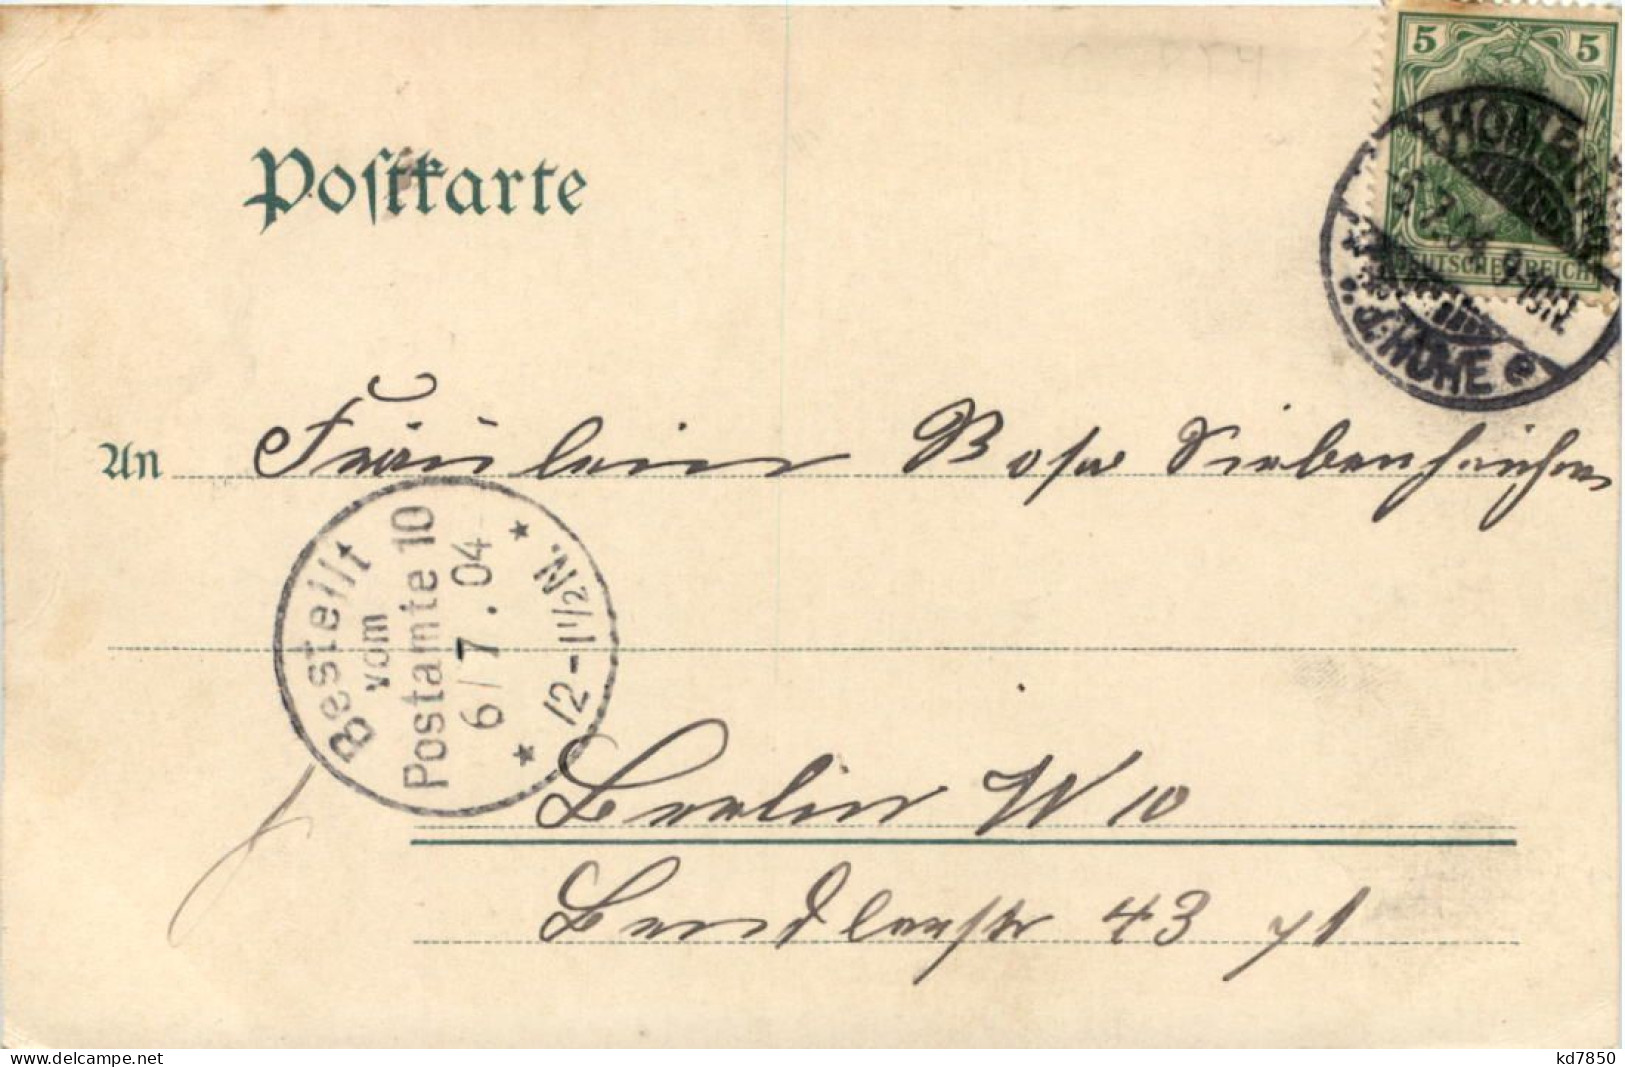 Postkarte
5 5
HOMBURG
5.7.04 9-10N.
DEUTSCHES REICH
v. d. HÖHE e
An Fräulein Rosa Siebenhaar
Bestellt
vom
Postamte 10
6/7.04
12-1½N.
Berlin W 10
Bendlerstr 43
www.delcampe.net
kd7850